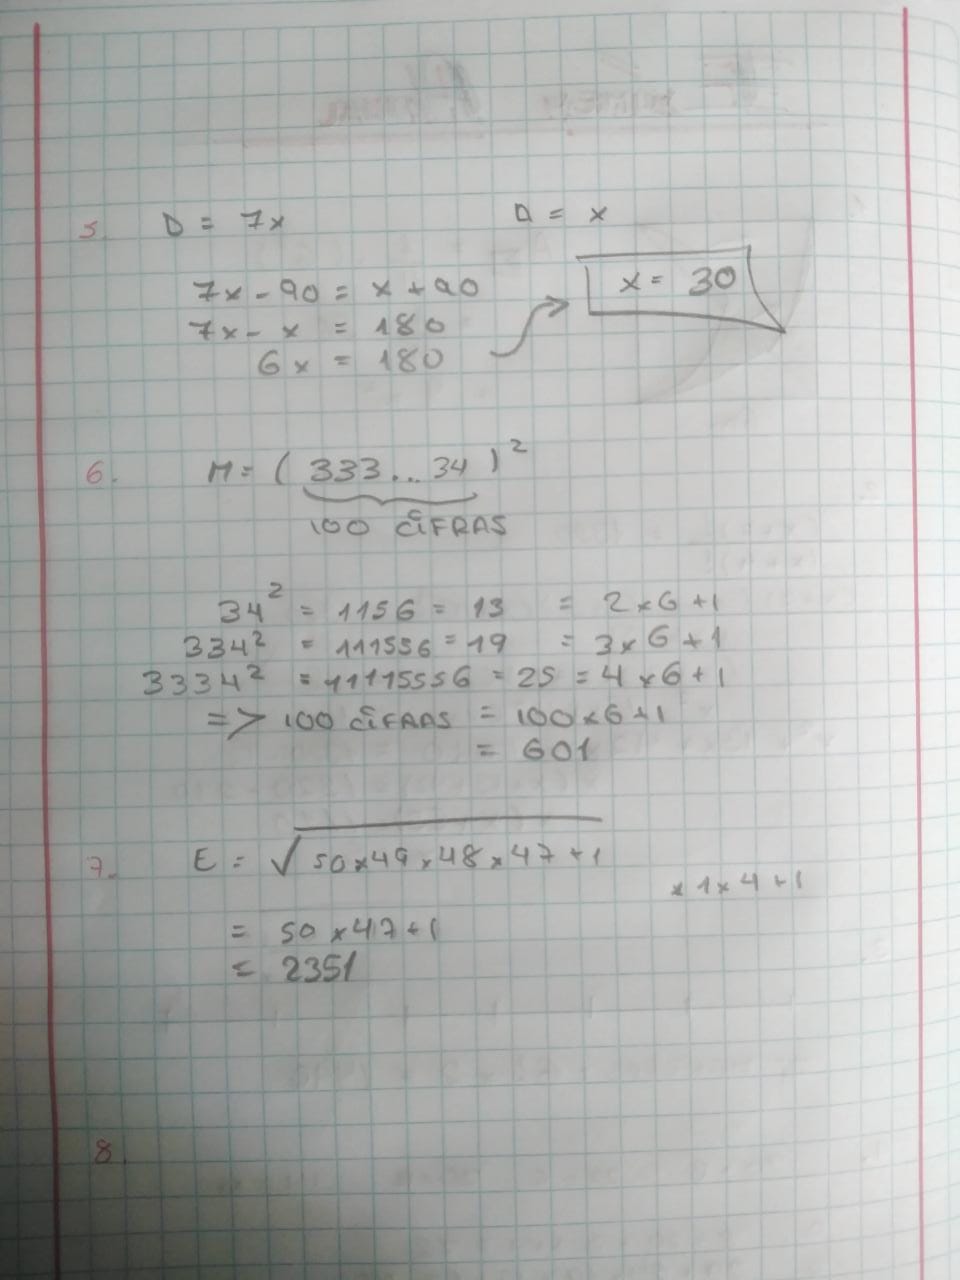 5. D = 7x A = x
7x - 90 = x + 90
7x - x = 180
6x = 180
x = 30
6. M = ( 333...34 )²
100 CIFRAS
34² = 1156 = 13 = 2 x 6 + 1
334² = 111556 = 19 = 3 x 6 + 1
3334² = 11115556 = 25 = 4 x 6 + 1
=> 100 CIFRAS = 100 x 6 + 1
= 601
7. E = √50 x 49 x 48 x 47 + 1
x 1 x 4 + 1
= 50 x 47 + 1
= 2351
8.